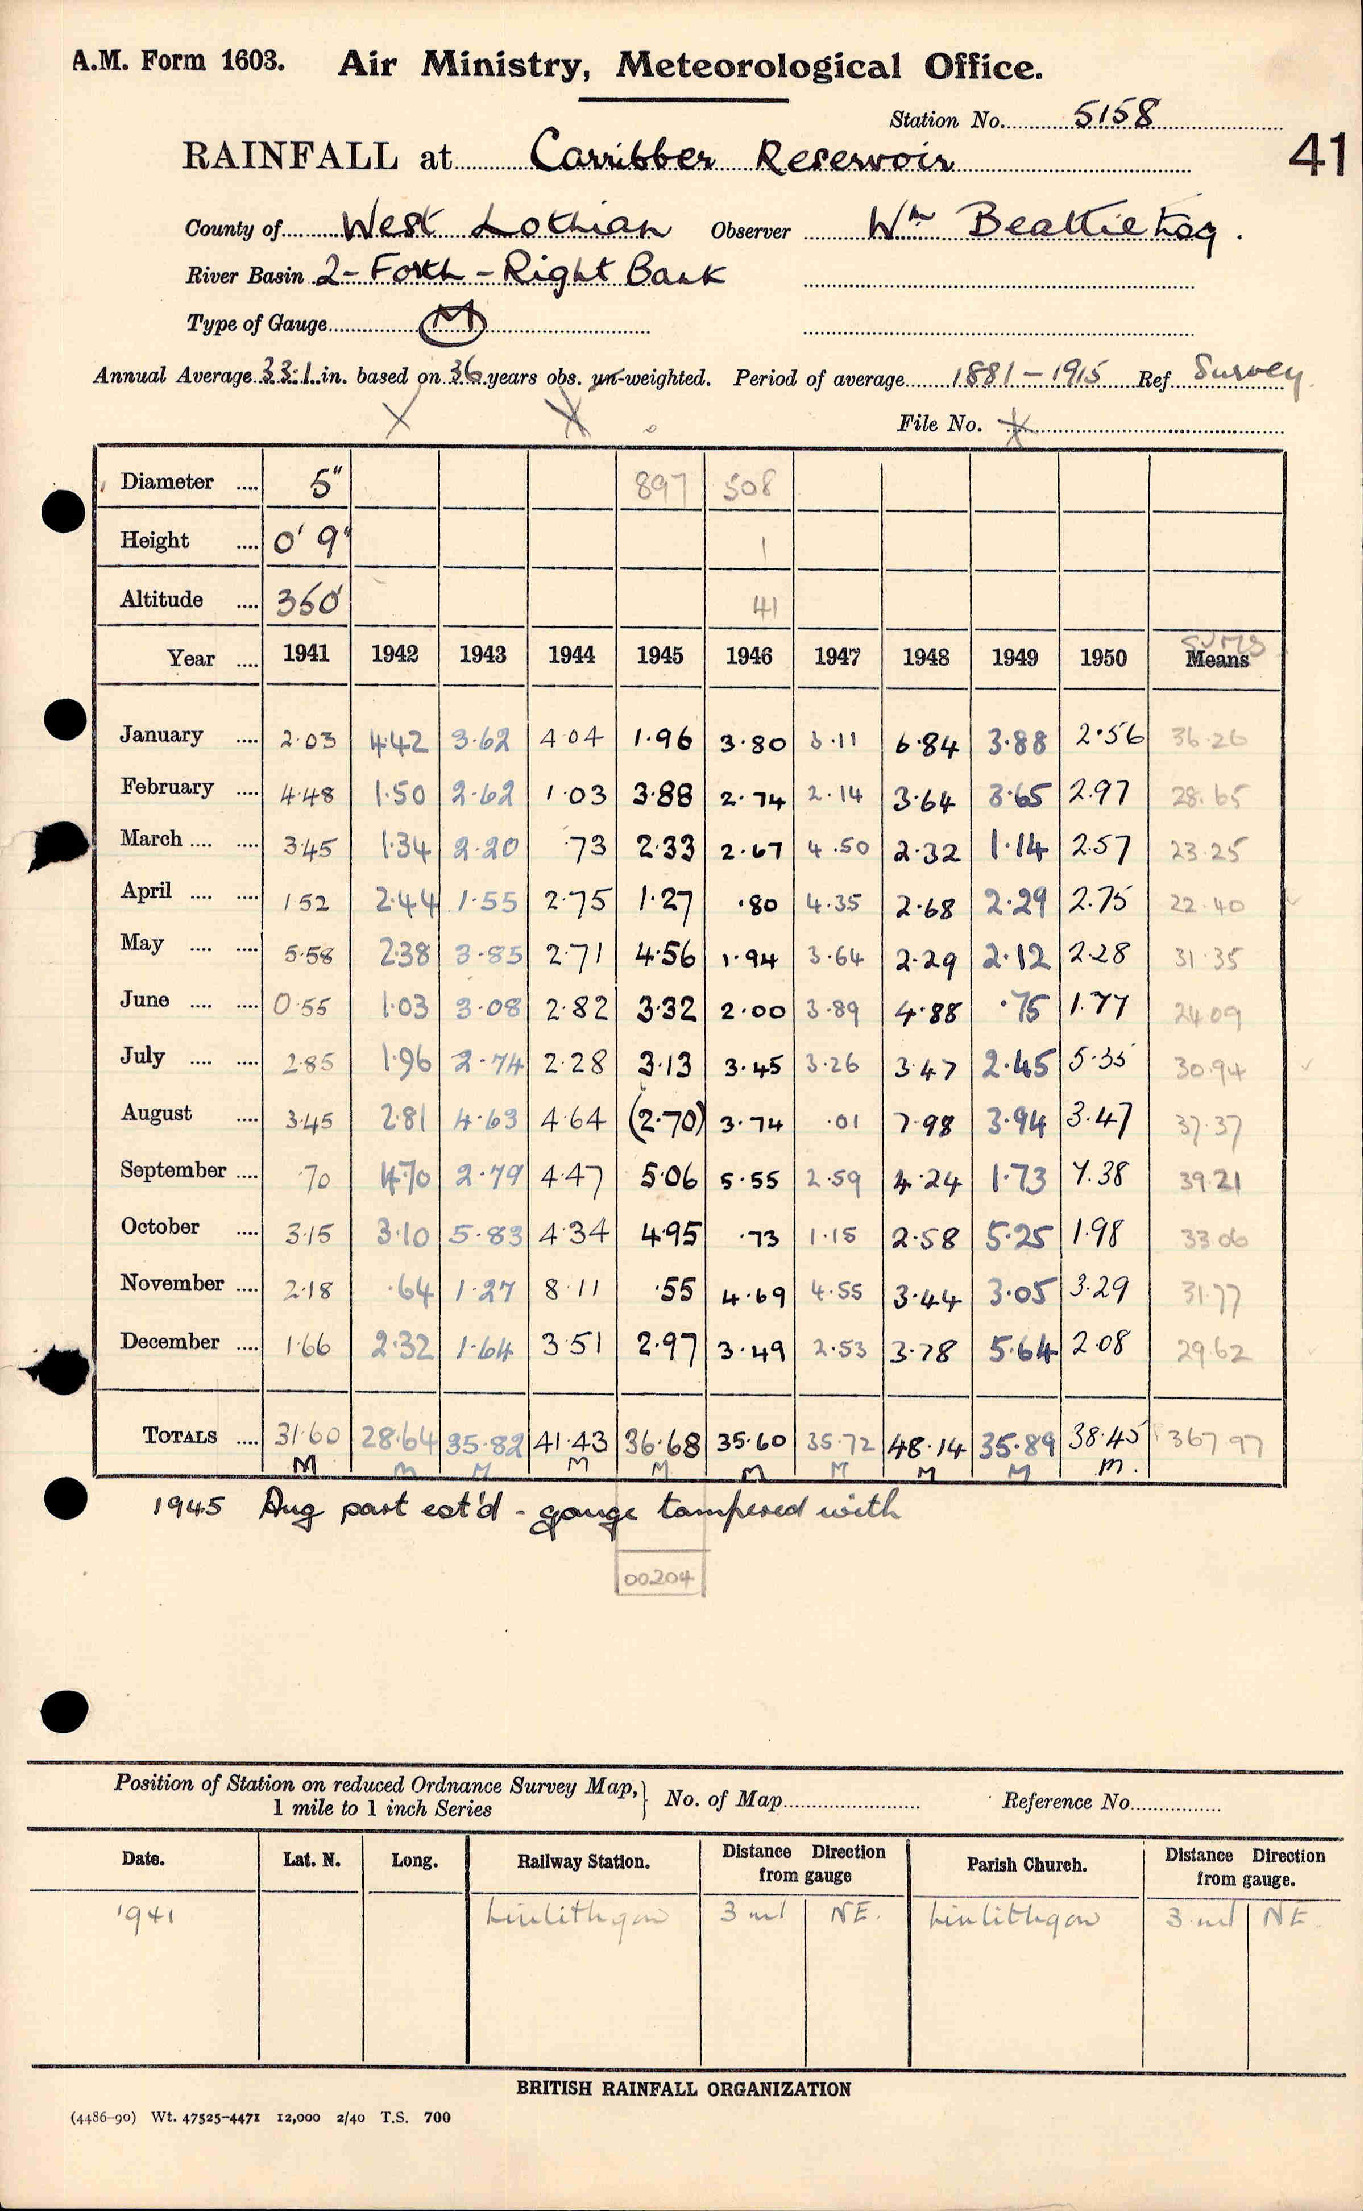 A.M. Form 1603. Air Ministry, Meteorological Office.
Station No. 5158
RAINFALL at Carribber Reservoir 41
County of West Lothian Observer Wm Beattie Esq.
River Basin 2-Forth-Right Bank
Type of Gauge M
Annual Average 33.1 in. based on 36 years obs. un-weighted. Period of average 1881-1915 Ref Survey
File No.
Diameter .... 5" 897 508
Height .... 0' 9" 1
Altitude .... 350' 41
Year .... 1941 1942 1943 1944 1945 1946 1947 1948 1949 1950 Means SUMS
January .... 2.03 4.42 3.62 4.04 1.96 3.80 3.11 6.84 3.88 2.56 36.26
February .... 4.48 1.50 2.62 1.03 3.88 2.74 2.14 3.64 3.65 2.97 28.65
March .... .... 3.45 1.34 2.20 .73 2.33 2.67 4.50 2.32 1.14 2.57 23.25
April .... .... 1.52 2.44 1.55 2.75 1.27 .80 4.35 2.68 2.29 2.75 22.40
May .... .... 5.58 2.38 3.85 2.71 4.56 1.94 3.64 2.29 2.12 2.28 31.35
June .... .... 0.55 1.03 3.08 2.82 3.32 2.00 3.89 4.88 .75 1.77 24.09
July .... .... 2.85 1.96 2.74 2.28 3.13 3.45 3.26 3.47 2.45 5.35 30.94
August .... 3.45 2.81 4.63 4.64 (2.70) 3.74 .01 7.98 3.94 3.47 37.37
September .... .70 4.70 2.79 4.47 5.06 5.55 2.59 4.24 1.73 7.38 39.21
October .... 3.15 3.10 5.83 4.34 4.95 .73 1.15 2.58 5.25 1.98 33.06
November .... 2.18 .64 1.27 8.11 .55 4.69 4.55 3.44 3.05 3.29 31.77
December .... 1.66 2.32 1.64 3.51 2.97 3.49 2.53 3.78 5.64 2.08 29.62
TOTALS .... 31.60 28.64 35.82 41.43 36.68 35.60 35.72 48.14 35.89 38.45 367.97
M M M M M M M M M m.
1945 Aug part est'd - gauge tampered with
00204
Position of Station on reduced Ordnance Survey Map, } No. of Map Reference No.
1 mile to 1 inch Series
Date. Lat. N. Long. Railway Station. Distance Direction from gauge Parish Church. Distance Direction from gauge.
1941 Linlithgow 3 ml NE. Linlithgow 3 ml NE.
BRITISH RAINFALL ORGANIZATION
(4486-90) Wt. 47525-4471 12,000 2/40 T.S. 700